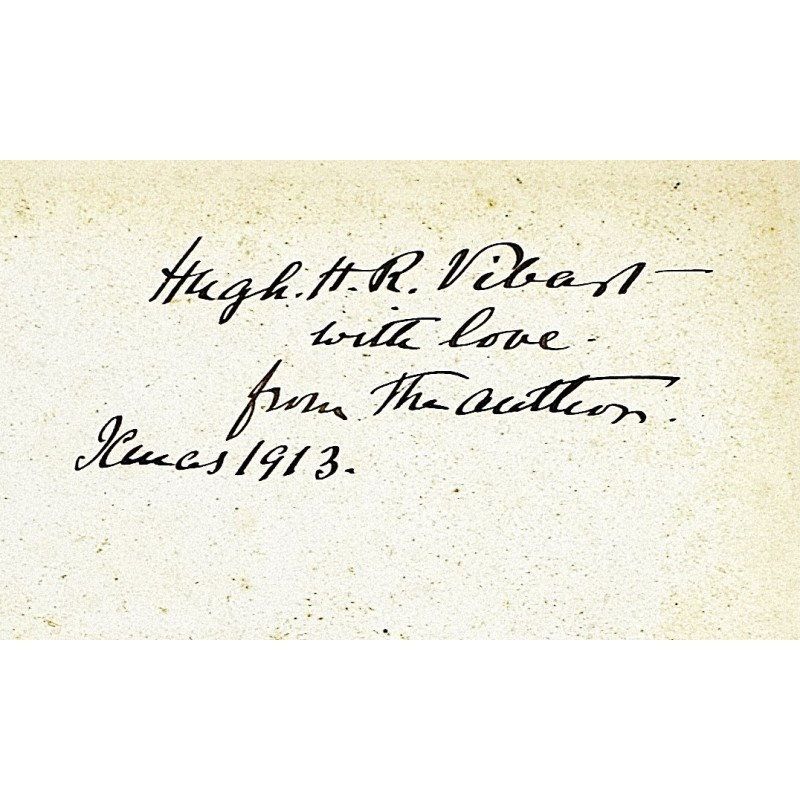 Hugh. H. R. Vibart
with love.
from the author.
Xmas 1913.